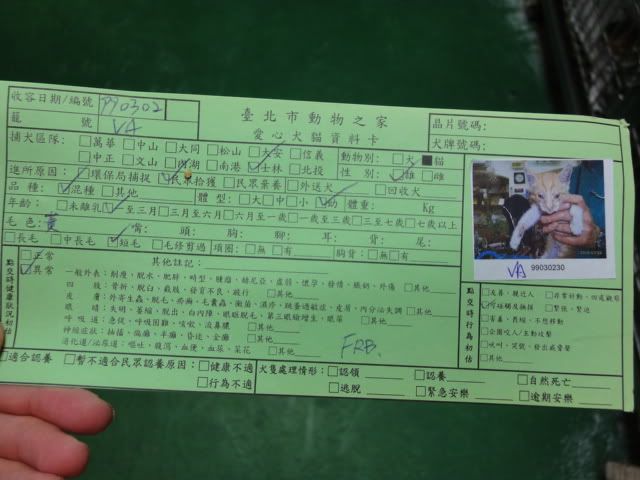 臺北市動物之家
愛心犬貓資料卡
收容日期/編號 990302
籠 號 VA
晶片號碼:
犬牌號碼:
捕犬區隊: □萬華 □中山 □大同 □松山 □大安 □信義
□中正 □文山 □內湖 □南港 ☑士林 □北投
動物別: □犬 ■貓
進所原因: □環保局捕捉 ☑民眾拾獲 □民眾棄養 □外送犬 □回收犬
性別: ☑雄 □雌
品種: ☑混種 □其他
體型: □大□中□小☑幼 體重: Kg
年齡: □未離乳☑一至三月□三月至六月□六月至一歲□一歲至三歲□三歲至七歲□七歲以上
毛色: 黃 嘴: 頭: 胸: 腳: 耳: 背: 尾:
□長毛 □中長毛 ☑短毛 □毛修剪過 項圈: □無 □有 胸背: □無□有
VA 99030230
點交時健康狀況初估
□正常
☑異常
其他註記:
一般外表: 削瘦、脫水、肥胖、畸型、腫瘤、赫尼亞、虛弱、懷孕、發情、脹奶、外傷 □其他
四 肢: 骨折、脫臼、截肢、發育不良、跛行 □其他
皮 膚: 外寄生蟲、脫毛、疥癬、毛囊蟲、黴菌、濕疹、跳蚤過敏症、皮屑、內分泌失調 □其他
眼 睛: 失明、萎縮、脫出、白內障、眼瞼脫毛、第三眼瞼增生、眼屎 □其他
呼 吸 道: 急促、呼吸困難、咳嗽、流鼻膿 □其他
神經症狀: 抽搐、癲癇、半癱、昏迷、全癱 □其他
消化道/泌尿道: 嘔吐、腹瀉、血便、血尿、菜花 □其他
FRB.
點交時行為初估
□友善、親近人 □非常好動、四處觀望
☑可碰觸及撫摸 □緊張、緊迫
□害羞、畏縮、不想移動
□企圖咬人/主動攻擊
□吠叫、哭號、發出威脅聲
□其他
□適合認養 □暫不適合民眾認養原因: □健康不適
□行為不適
犬隻處理情形: □認領 □認養 □自然死亡
□逃脫 □緊急安樂 □逾期安樂